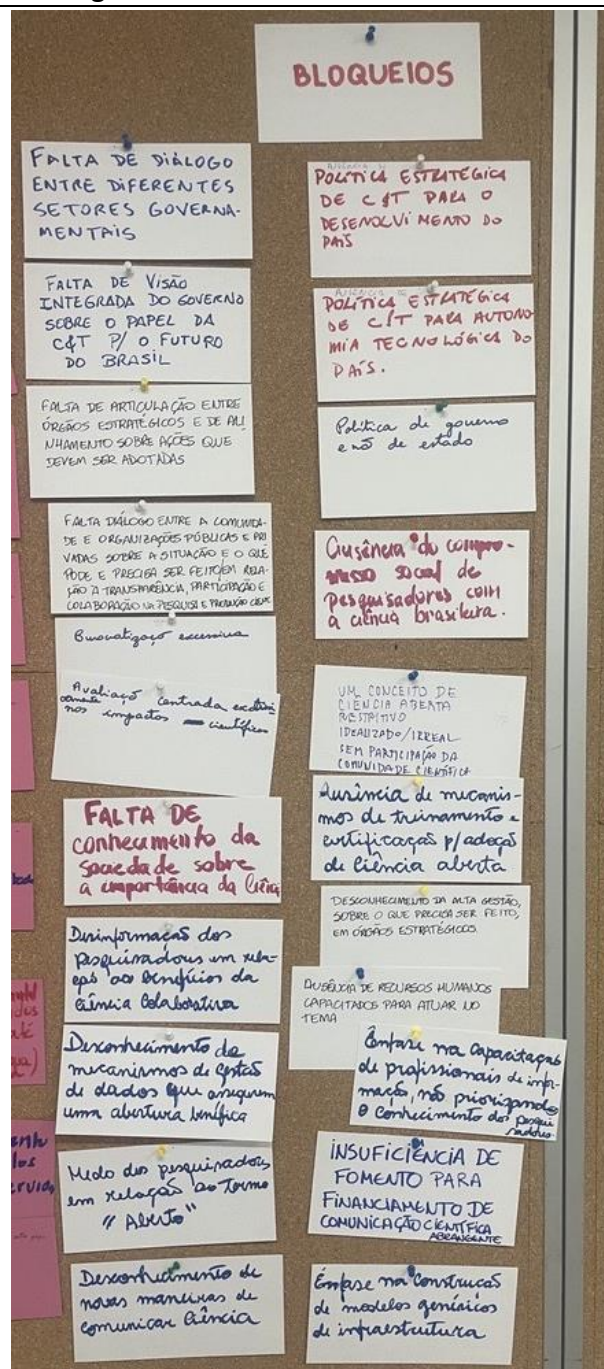 BLOQUEIOS
FALTA DE DIÁLOGO
ENTRE DIFERENTES
SETORES GOVERNA-
MENTAIS
FALTA DE VISÃO
INTEGRADA DO GOVERNO
SOBRE O PAPEL DA
C&T P/ O FUTURO
DO BRASIL
FALTA DE ARTICULAÇÃO ENTRE
ÓRGÃOS ESTRATÉGICOS E DE ALI
NHAMENTO SOBRE AÇÕES QUE
DEVEM SER ADOTADAS
FALTA DIÁLOGO ENTRE A COMUNIDA-
DE E ORGANIZAÇÕES PÚBLICAS E PRI
VADAS SOBRE A SITUAÇÃO E O QUE
PODE E PRECISA SER FEITO EM RELA-
ÇÃO À TRANSPARÊNCIA, PARTICIPAÇÃO E
COLABORAÇÃO NA PESQUISA E PRODUÇÃO
Burocratização excessiva
Avaliação centrada
nos impactos científicos
FALTA DE
conhecimento da
sociedade sobre
a importância da
Desinformação dos
pesquisadores em rela-
ção aos benefícios da
Ciência Colaborativa
Desconhecimento de
mecanismos de gestão
de dados que assegurem
uma abertura benéfica
Medo dos pesquisadores
em relação ao termo
"Aberto"
Desconhecimento de
novas maneiras de
comunicar Ciência
AUSÊNCIA
POLÍTICA ESTRATÉGICA
DE C&T PARA O
DESENOLVIMENTO DO
PAÍS
AUSÊNCIA
POLÍTICA ESTRATÉGICA
DE C&T PARA AUTONO
MIA TECNOLÓGICA DO
PAÍS.
Política de governo
e não de estado
Ausência do compro-
misso social de
pesquisadores com
a ciência brasileira.
UM CONCEITO DE
CIÊNCIA ABERTA
RESTRITIVO
IDEALIZADO/IRREAL
SEM PARTICIPAÇÃO DA
COMUNIDADE CIENTÍFICA
Ausência de mecanis-
mos de treinamento e
certificação p/ adoção
de Ciência aberta
DESCONHECIMENTO DA ALTA GESTÃO,
SOBRE O QUE PRECISA SER FEITO,
EM ÓRGÃOS ESTRATÉGICOS.
AUSÊNCIA DE RECURSOS HUMANOS
CAPACITADOS PARA ATUAR NO
TEMA
Ênfase na capacitação
de profissionais de infor-
mação, não priorizando
o conhecimento dos pesqui
sadores.
INSUFICIÊNCIA DE
FOMENTO PARA
FINANCIAMENTO DE
COMUNICAÇÃO CIENTÍFICA
ABRANGENTE
Ênfase na Construção
de modelos genéricos
de infraestrutura